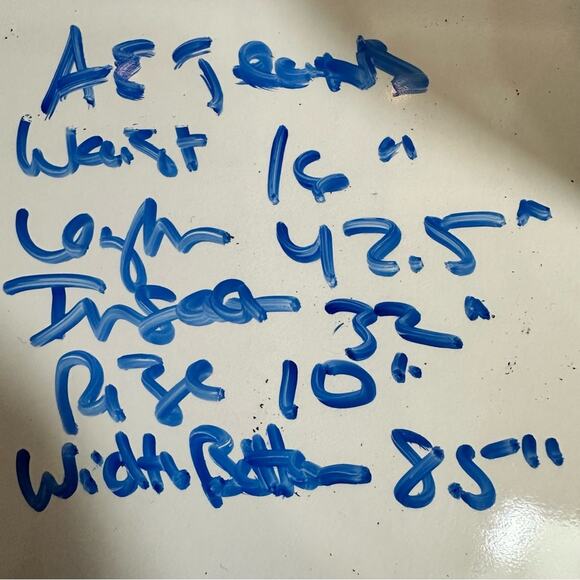 AE Jeans
Waist 16"
Length 42.5"
Inseam 32"
Rise 10"
Width Bottom 8.5"